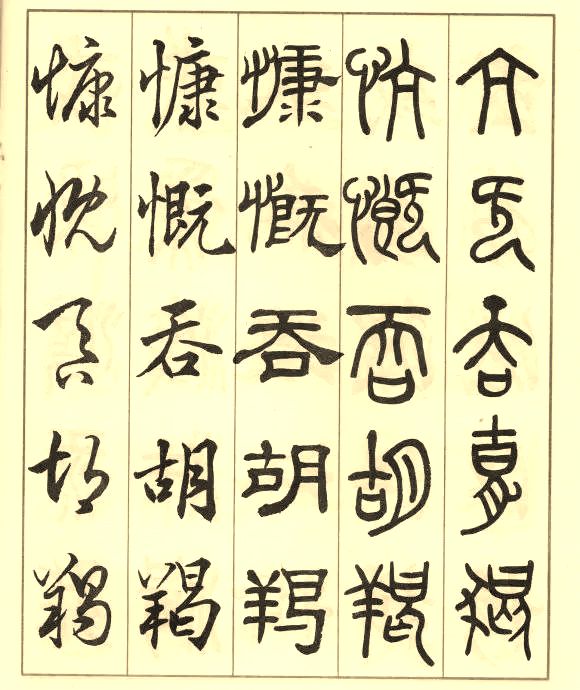 亢旡吞胡羯
忼慨吞胡羯
慷慨吞胡羯
慷慨吞胡羯
慷慨吞胡羯